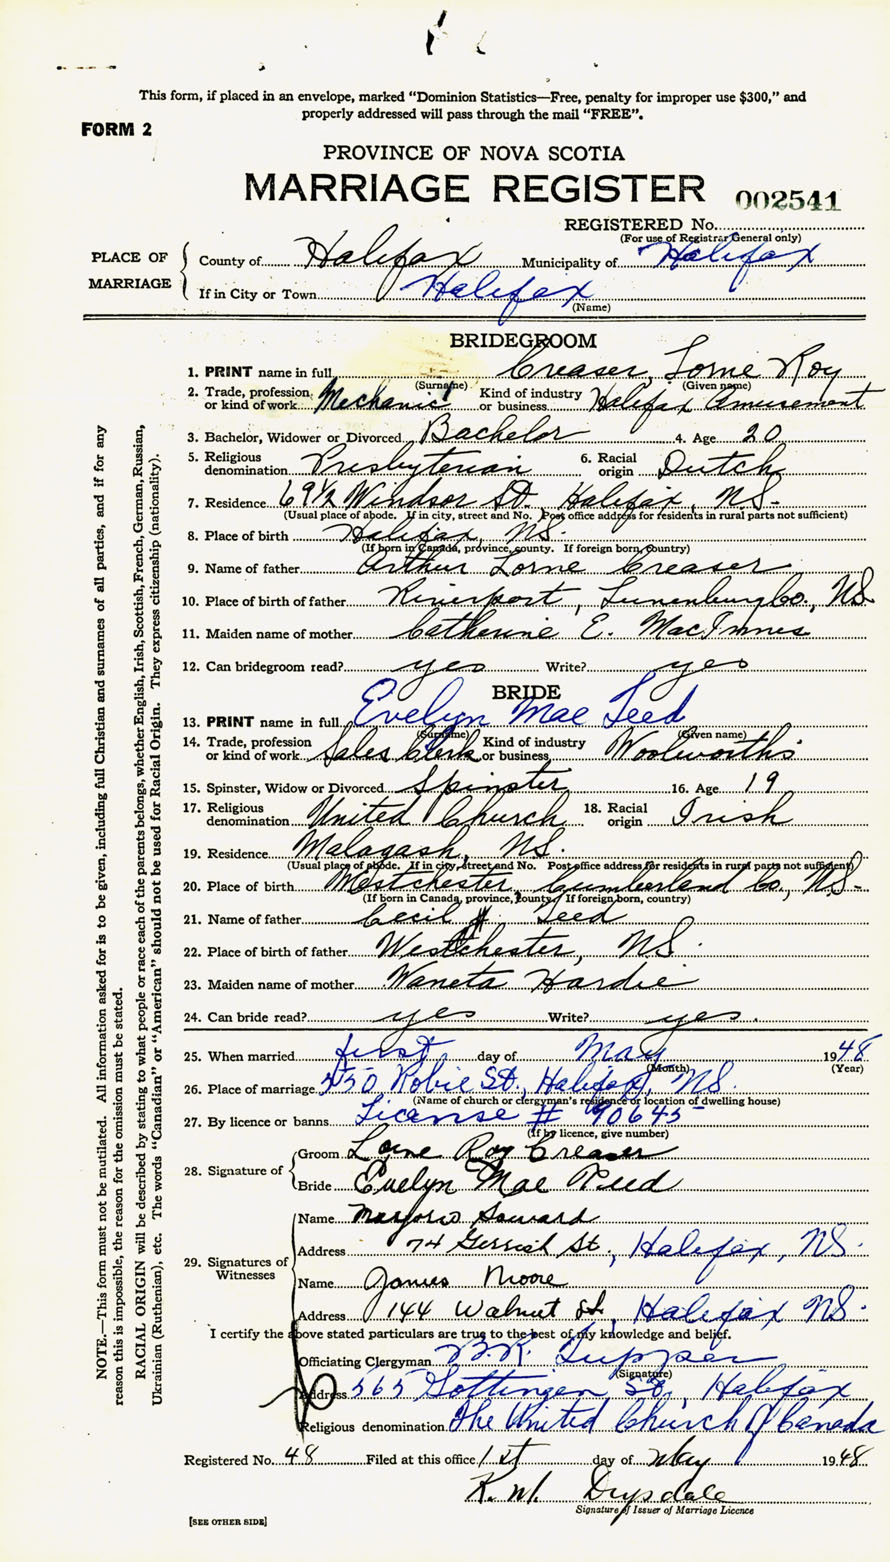 This form, if placed in an envelope, marked "Dominion Statistics—Free, penalty for improper use $300," and
properly addressed will pass through the mail "FREE".
FORM 2
PROVINCE OF NOVA SCOTIA
MARRIAGE REGISTER 002541
REGISTERED No.
(For use of Registrar General only)
PLACE OF MARRIAGE
County of Halifax Municipality of Halifax
If in City or Town Halifax
(Name)
BRIDEGROOM
1. PRINT name in full Creaser, Lorne Roy
(Surname) (Given name)
2. Trade, profession or kind of work Mechanic Kind of industry or business Halifax Amusement
3. Bachelor, Widower or Divorced Bachelor 4. Age 20
5. Religious denomination Presbyterian 6. Racial origin Dutch
7. Residence 69½ Windsor St. Halifax, NS.
(Usual place of abode. If in city, street and No. Post office address for residents in rural parts not sufficient)
8. Place of birth Halifax, NS.
(If born in Canada, province, county. If foreign born, country)
9. Name of father Arthur Lorne Creaser
10. Place of birth of father Riverport, Lunenburg Co., NS.
11. Maiden name of mother Catherine E. MacInnes
12. Can bridegroom read? yes Write? yes
BRIDE
13. PRINT name in full Evelyn Mae Teed
(Surname) (Given name)
14. Trade, profession or kind of work Sales Clerk Kind of industry or business Woolworths
15. Spinster, Widow or Divorced Spinster 16. Age 19
17. Religious denomination United Church 18. Racial origin Irish
19. Residence Malagash, NS.
(Usual place of abode. If in city, street and No. Post office address for residents in rural parts not sufficient)
20. Place of birth Westchester, Cumberland Co., NS.
(If born in Canada, province, county. If foreign born, country)
21. Name of father Cecil Teed
22. Place of birth of father Westchester, NS.
23. Maiden name of mother Waneta Hardie
24. Can bride read? yes Write? yes.
25. When married first day of May 1948
(Month) (Year)
26. Place of marriage 350 Robie St., Halifax, NS.
(Name of church or clergyman's residence or location of dwelling house)
27. By licence or banns License # 90645
(If by licence, give number)
28. Signature of
Groom Lorne Roy Creaser
Bride Evelyn Mae Teed
29. Signatures of Witnesses
Name Marjorie Saward
Address 74 Gerrish St., Halifax, NS.
Name James Moore
Address 144 Walnut St., Halifax NS.
I certify the above stated particulars are true to the best of my knowledge and belief.
Officiating Clergyman B.R. Tupper
(Signature)
Address 565 Gottingen St., Halifax
Religious denomination The United Church of Canada
Registered No. 48 Filed at this office 1st day of May 1948
R. M. Drysdale
Signature of Issuer of Marriage Licence
[SEE OTHER SIDE]
NOTE.—This form must not be mutilated. All information asked for is to be given, including full Christian and surnames of all parties, and if for any
reason this is impossible, the reason for the omission must be stated.
RACIAL ORIGIN will be described by stating to what people or race each of the parents belongs, whether English, Irish, Scottish, French, German, Russian,
Ukrainian (Ruthenian), etc. The words "Canadian" or "American" should not be used for Racial Origin. They express citizenship (nationality).